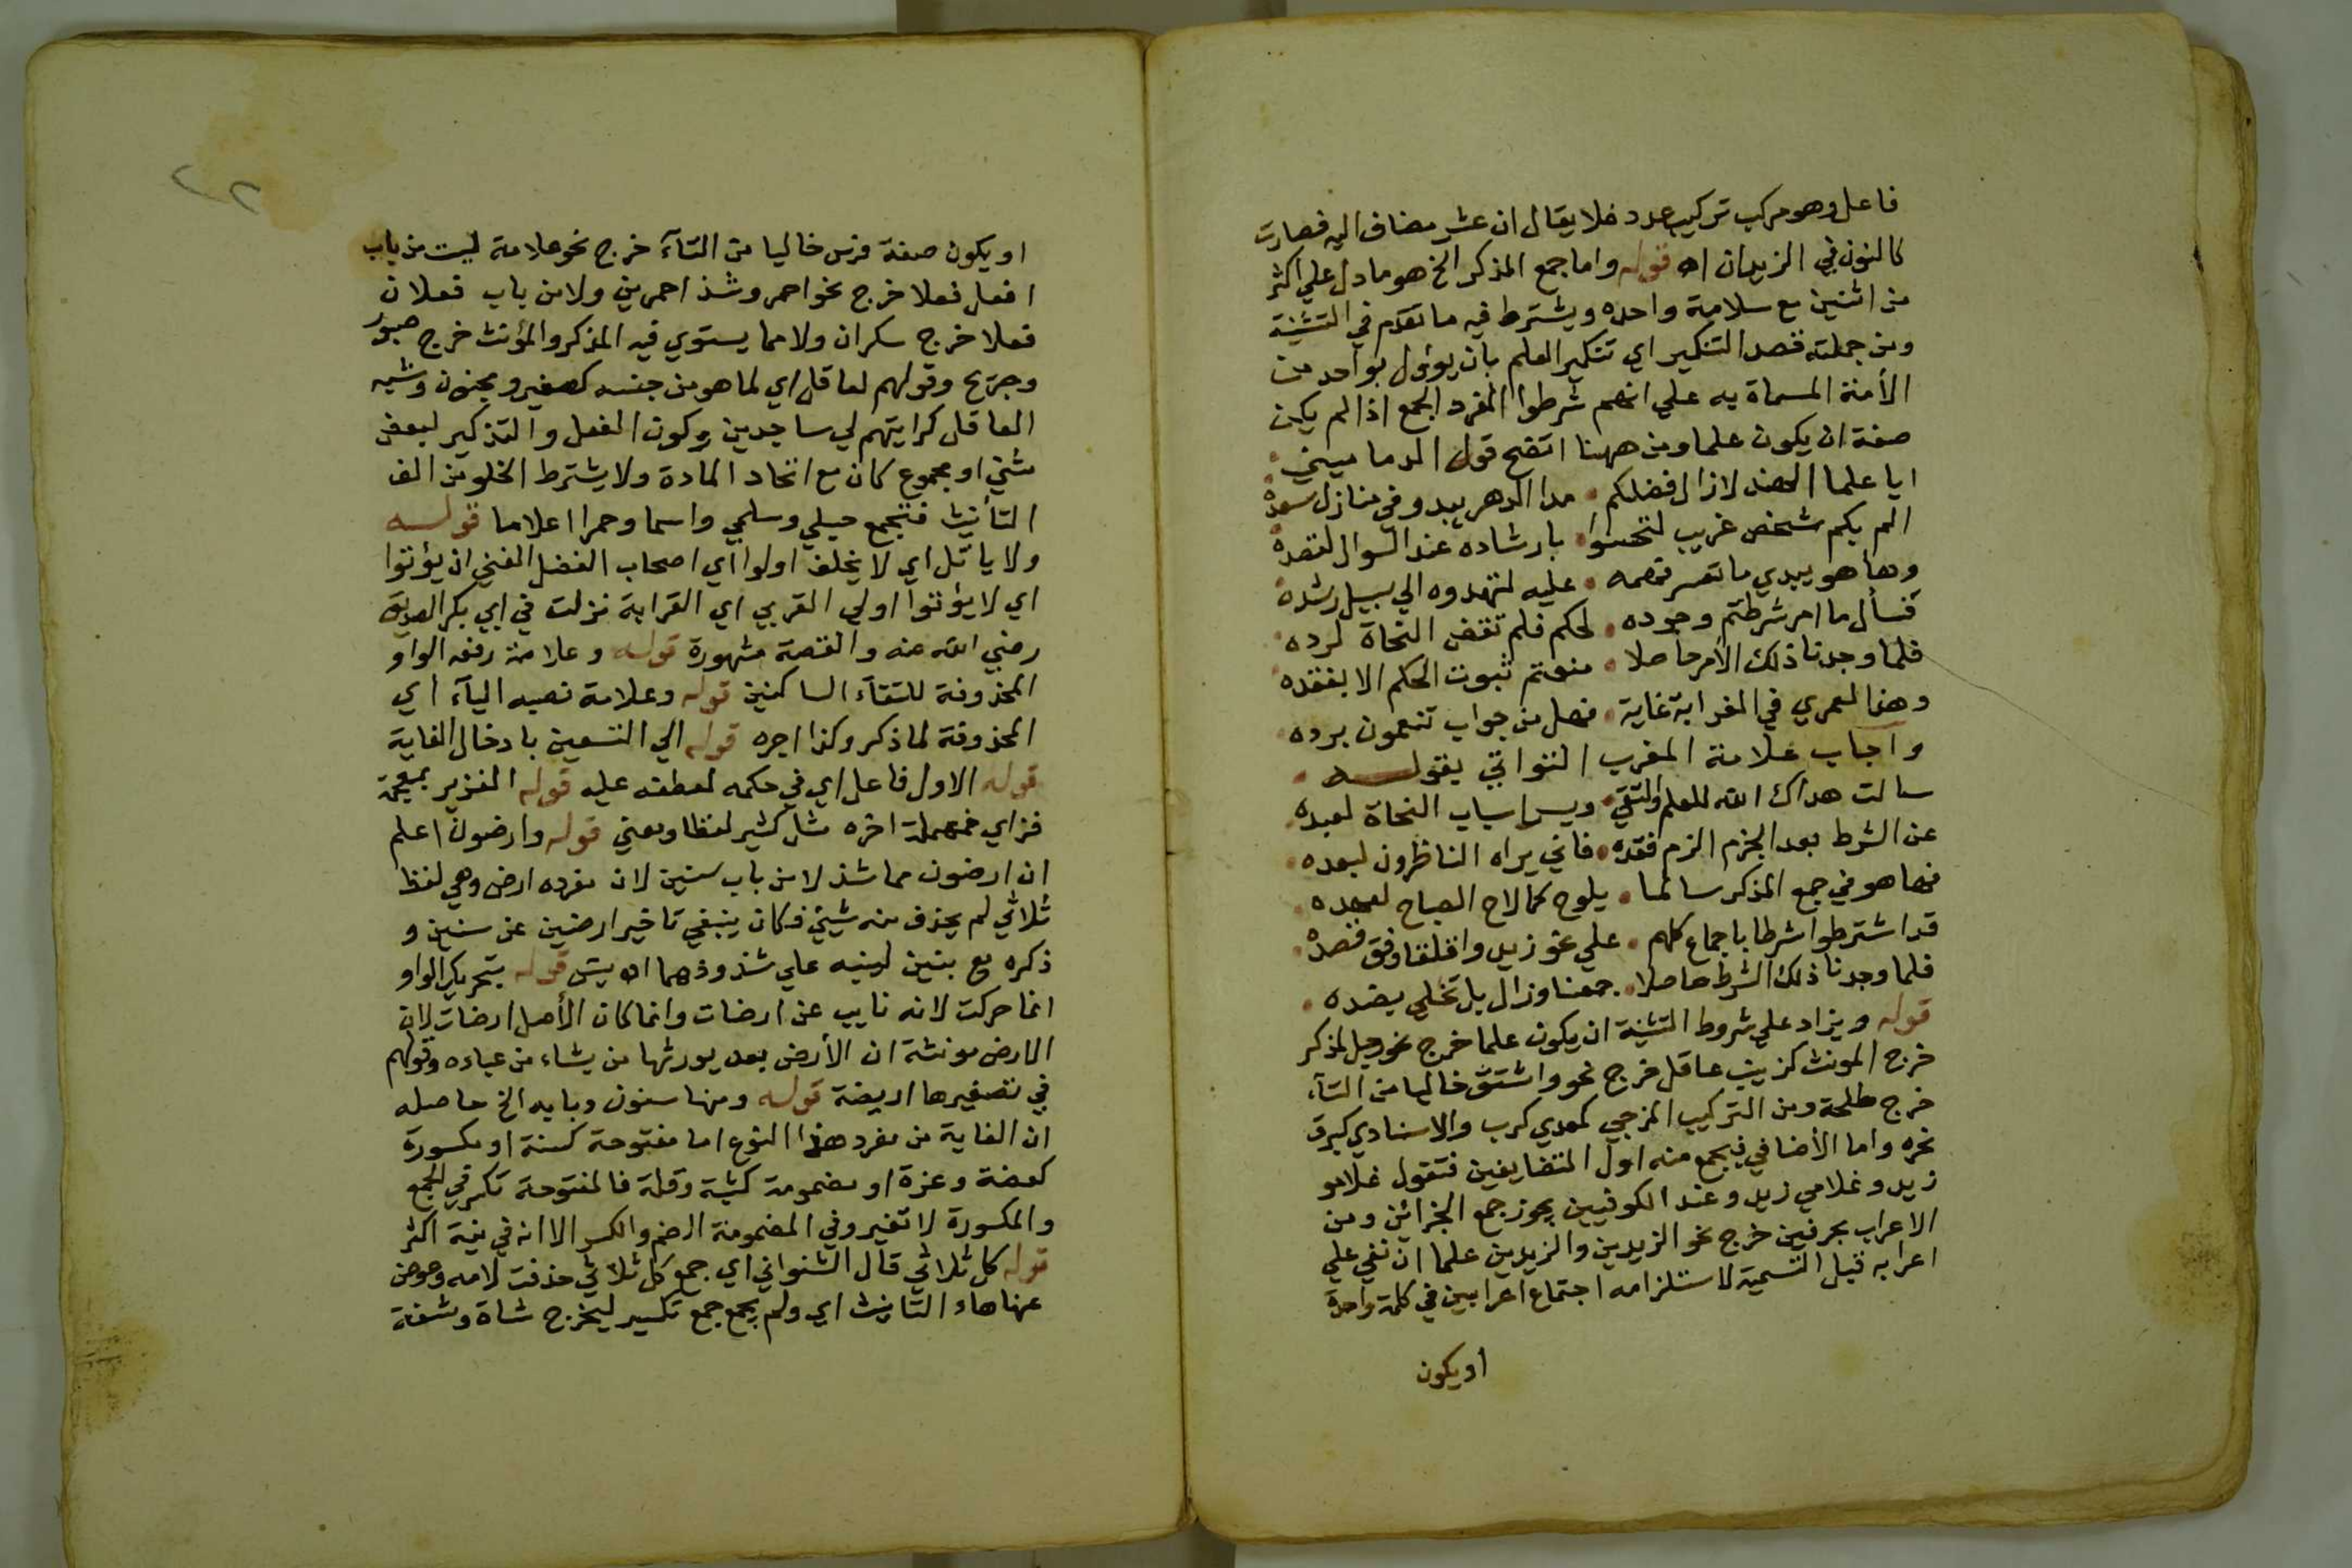 فاعل وهو مركب تركيب عدد فلا يقال ان عشر مضاف اليه فصارت
كالنون في الزيدان اه قوله واما جمع المذكر الخ هو ما دل علي اكثر
من اثنين مع سلامة واحده ويشترط فيه ما تقدم في التثنية
ومن جملته قصد التنكير اي تنكير العلم بان يوئول بواحد من
الأمنة المسماة به علي انهم شرطوا المفرد الجمع اذا لم يكن
صفة ان يكون علما ومن ههنا اتضح قول الدماميني
ايا علما الهند لازال فضلكم مدا الدهر يبدو في منازل سعده
الم بكم شخص غريب لتحسنوا بارشاده عند السوال لقصده
وها هو يبدي ما تعسر فهمه عليه لتهدوه الي سبيل رشده
فسأل ما امر شرطتم وجوده لحكم فلم تقض النحاة لرده
فلما وجدنا ذلك الأمر حاصلا منعتم ثبوت الحكم الا بفقده
وهذا لعمري في الغرابة غاية فهل من جواب تنعمون برده
واجاب علامة المغرب التواتي يقوله
سالت هداك الله للعلم والتقي ويسر اسباب النحاة لعبده
عن الشرط بعد الجزم الزم فقده فاني يراه الناظرون لبعده
فها هو في جمع المذكر سالما يلوح كما لاح الصباح لمجده
قد اشترطوا شرطا باجماع كلهم علي نحو زيد وافلقا وفق قصده
فلما وجدنا ذلك الشرط حاصلا جمعنا وزال بل تخلي بضده
قوله ويزاد علي شروط التثنية ان يكون علما خرج نحو رجل لمذكر
خرج المونث كزينب عاقل خرج نحو واشتق خاليا من التآء
خرج طلحة ومن التركيب المزجي كمعدي كرب والاسنادي كبرق
نحره واما الأضافي فيجمع منه اول المتضايفين فتقول غلامو
زيد وغلامي زيد وعند الكوفيين يجوز جمع الجزائن ومن
الاعراب بحرفين خرج نحو الزيدين والزيدين علما ان نفي علي
اعرابه قبل التسمية لاستلزامه اجتماع اعرابين في كلمة واحدة
او يكون
٢٢
او يكون صفة فرس خاليا من التآء خرج نحو علامة ليست من باب
افعل فعلا خرج نحو احمر وشذ احمرين ولا من باب فعلان
فعلا خرج سكران ولا مما يستوي فيه المذكر والمؤنث خرج صبور
وجريح وقولهم لعاقل اي لما هو من جنسه كصغير ومجنون وشبه
العاقل كرايتهم لي ساجدين وكون الفعل والتذكير لبعض
مثني او مجموع كان مع اتحاد المادة ولا يشترط الخلو من الف
التأنيث فتجمع حبلي وسلمي واسما وحمرا اعلاما قوله
ولا ياتل اي لا يخلف اولوا اي اصحاب الفضل الغني ان يؤتوا
اي لا يؤتوا اولي القربي اي القرابة نزلت في ابي بكر الصديق
رضي الله عنه والقصة مشهورة قوله وعلامة رفعه الواو
المحذوفة للتقآء الساكنين قوله وعلامة نصبه اليآء اي
المحذوفة لما ذكر وكذا اجره قوله الي التسعين بادخال الغاية
قوله الاول فاعل اي في حكمه لعطفه عليه قوله الغزير بمعجمة
فزاي فمهملة اخره مثل كثير لفظا ومعني قوله وارضون اعلم
ان ارضون مما شذ لا من باب سنين لان مفرده ارض وهي لفظ
ثلاثي لم يحذف منه شيئ فكان ينبغي تاخير ارضين عن سنين و
ذكره مع بنين لينبه علي شذوذهما اه يس قوله بتحريك الواو
انما حركت لانه نايب عن ارضات وانما كان الأصل ارضات لان
الارض مونثة ان الأرض بعد يورثها من يشاء من عباده وقولهم
في تصغيرها اريضة قوله ومنها سنون وبابه الخ حاصله
ان الغاية من مفرد هذا النوع اما مفتوحة كسنة او مكسورة
كعضة وعزة او مضمومة كثبة وقلة فالمفتوحة تكسر في الجمع
والمكسورة لا تغير وفي المضمومة الضم والكسر الا انه في ثبة اكثر
قوله كل ثلاثي قال الشنواني اي جمع كل ثلاثي حذفت لامه وعوض
عنها هاء التانيث اي ولم يجمع جمع تكسير ليخرج شاة وشفة